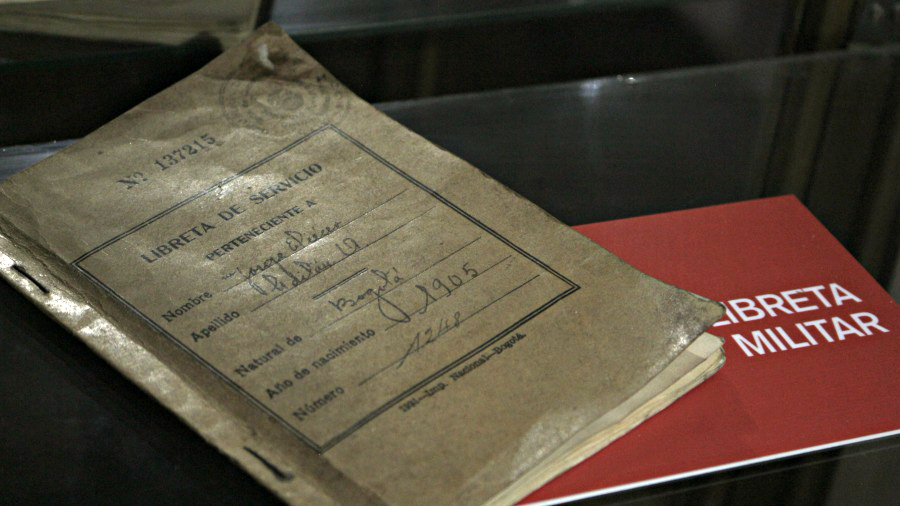 Nº 137215
LIBRETA DE SERVICIO
PERTENECIENTE A
Nombre Jorge Eliécer
Apellido
Natural de Bogotá
Año de nacimiento 1905
Número 1248
Imp. Nacional—Bogotá.
LIBRETA
MILITAR